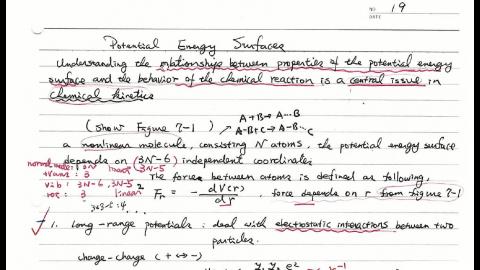 NO. 19
DATE
Potential Energy Surfaces
Understanding the relationships between properties of the potential energy
surface and the behavior of the chemical reaction is a central issue in
chemical kinetics
A+B → A--B
(show Figure 7-1) A-B+C → A-B-- C
a nonlinear molecule, consisting N atoms, the potential energy surface
depends on (3N-6) independent coordinates
normal modes: 3N linear 3N-5
trans: 3
The forces between atoms is defined as following,
vib: 3N-6, 3N-5
rot: 3 2 linear
Fr = - dV(r) / dr , force depends on r from figure 7-1
1. long-range potentials: deal with electrostatic interactions between two
particles.
charge-charge (+ ↔ -)